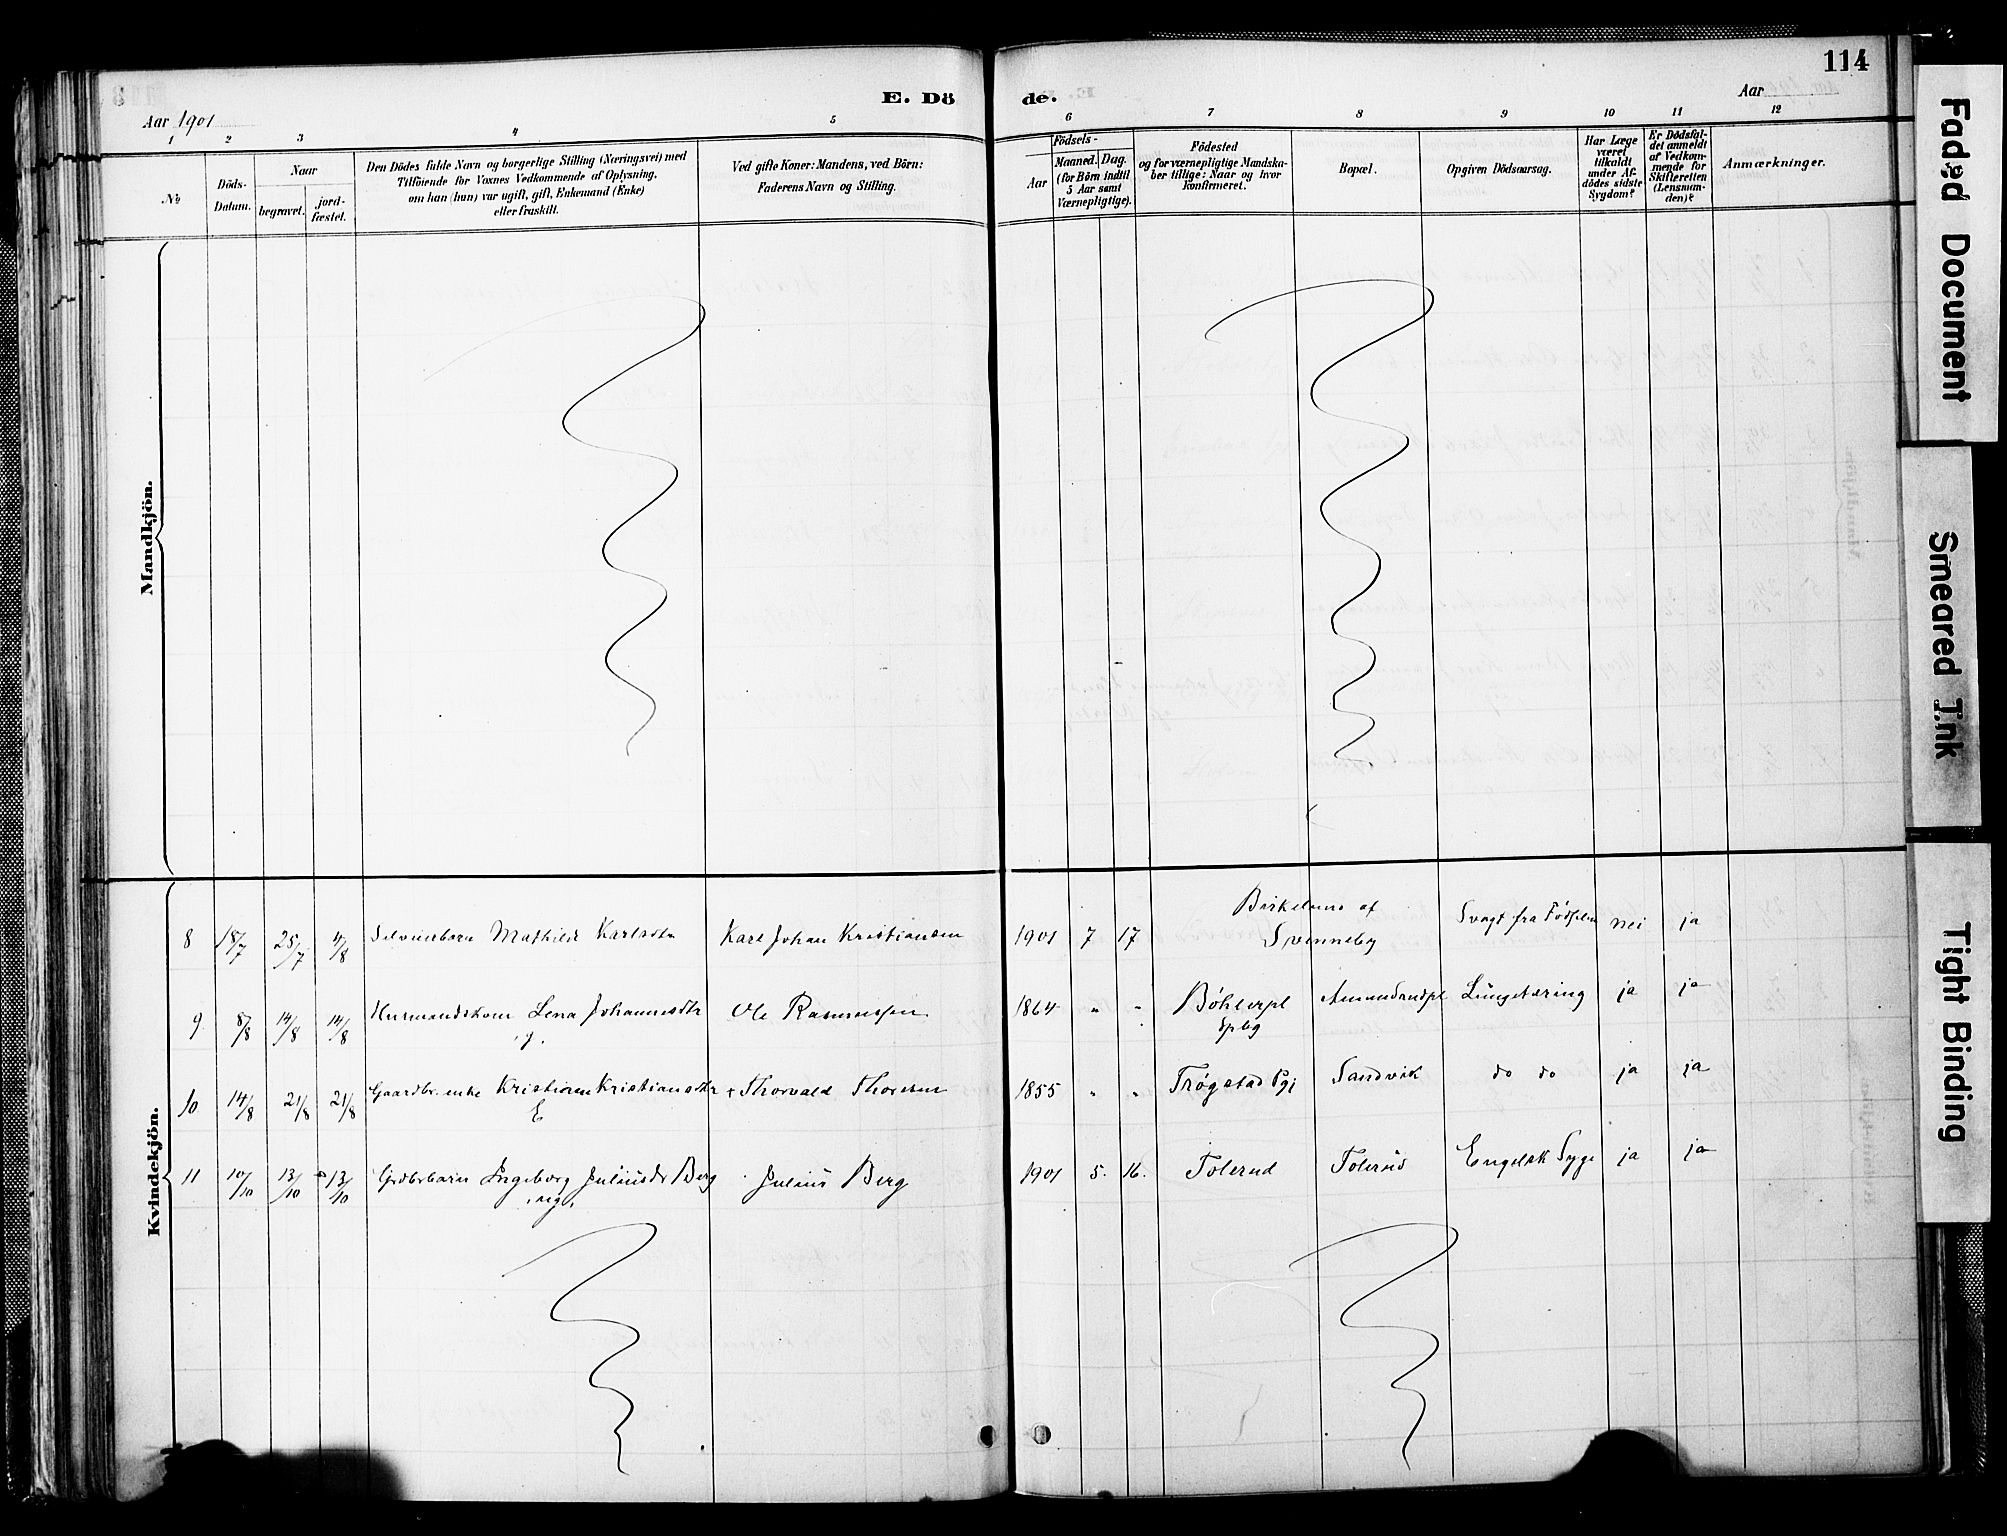 114
E. Dö de.
Aar 1901
Aar
1 2 3 4 5 6 7 8 9 10 11 12
№
Döds-Datum.
Naar
begravet.
jord-fæstet.
Den Dödes fulde Navn og borgerlige Stilling (Næringsvei) med
Tilföiende for Voxnes Vedkommende af Oplysning,
om han (hun) var ugift, gift, Enkemand (Enke)
eller fraskilt.
Ved gifte Koner: Mandens, ved Börn:
Faderens Navn og Stilling.
Födsels-
Aar
Maaned. Dag.
(for Börn indtil
5 Aar samt
Værnepligtige).
Födested
og for værnepligtige Mandska-
ber tillige: Naar og hvor
konfirmeret.
Bopæl.
Opgiven Dödsaarsag.
Har Læge
været
tilkaldt
under Af-
dödes sidste
Sygdom?
Er Dödsfal-
det anmeldt
af Vedkom-
mende for
Skifteretten
(Lensman-
den)?
Anmærkninger.
Mandkjön.
Kvindekjön.
8 18/7 25/7 4/8 Mathilde Karlsdtr Karl Johan Kristiansen 1901 7 17 af Svinneby Svagt fra Födselen nei ja
9 8/8 14/8 14/8 Husmandskone Lena Johannesdtr Ole Rasmussen 1864 " " Böhlerpl Spbg Amundrudpl Lungetæring ja ja
g.
10 14/8 21/8 21/8 Gaardbr. enke Kristiane Kristiansdtr + Thorvald Thoresen 1855 " " Trøgstad Pgj Sandvik do do ja ja
E
11 10/10 13/10 13/10 Grdbrbarn Ingeborg Juliusdr Berg Julius Berg 1901 5. 16. Tolerud Tolerud Engelsk Syge ja ja
ug.
Faded Document
Smeared Ink
Tight Binding